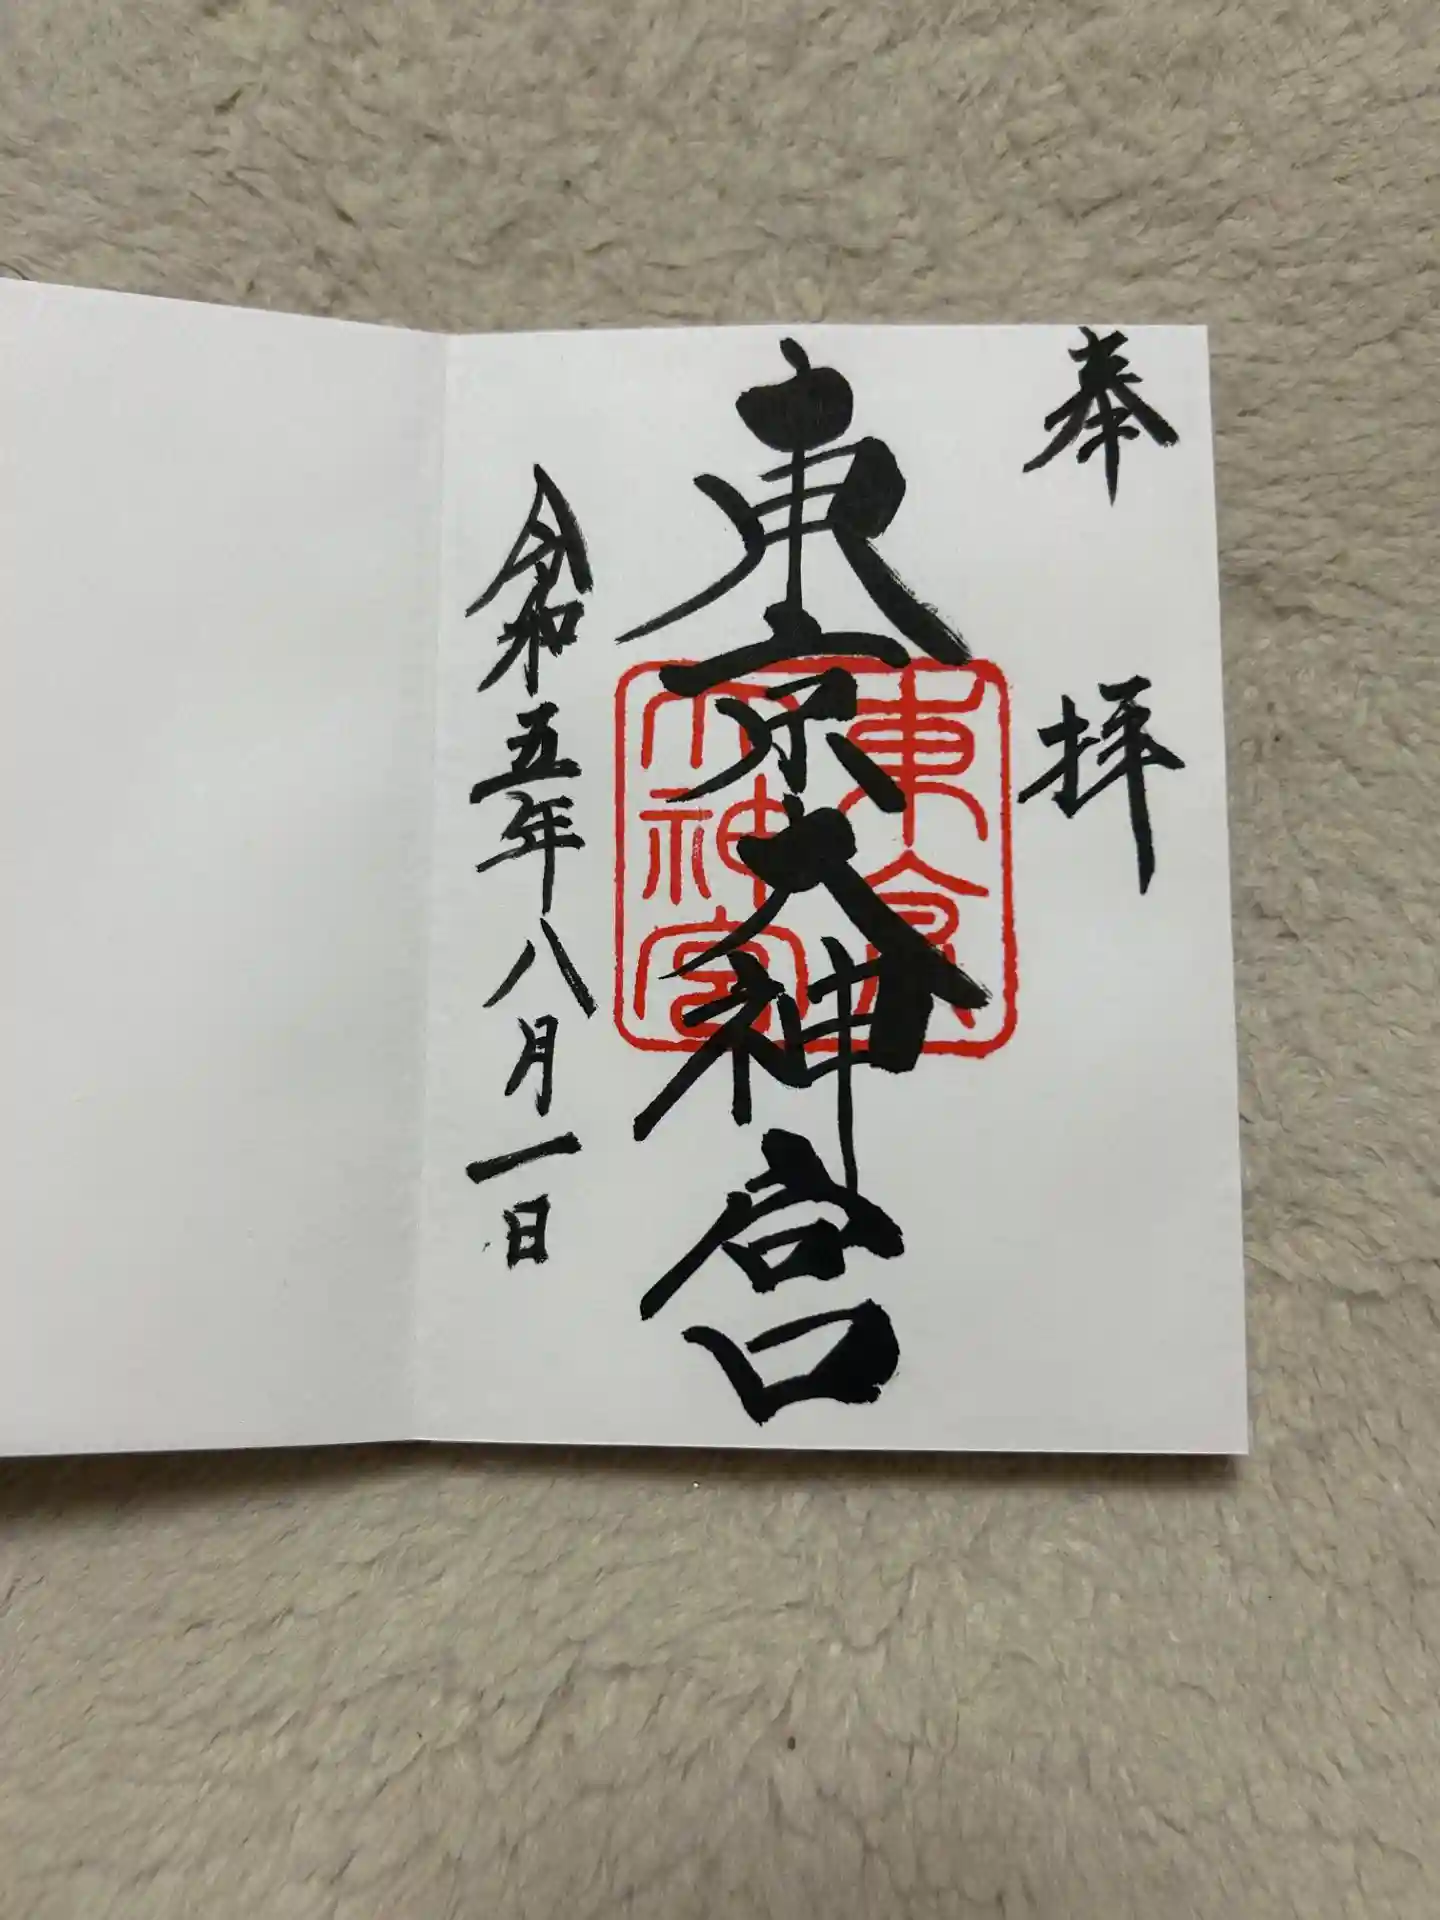 奉拝
東京大神宮
東京
大神宮
令和五年八月一日